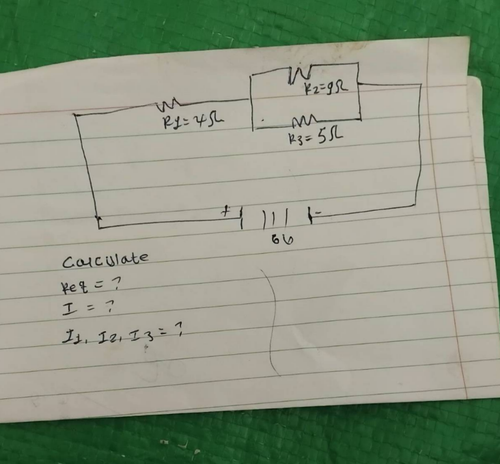 R2=9Ω
R1=4Ω
R3=5Ω
+ -
6V
Calculate
Req = ?
I = ?
I1, I2, I3 = ?